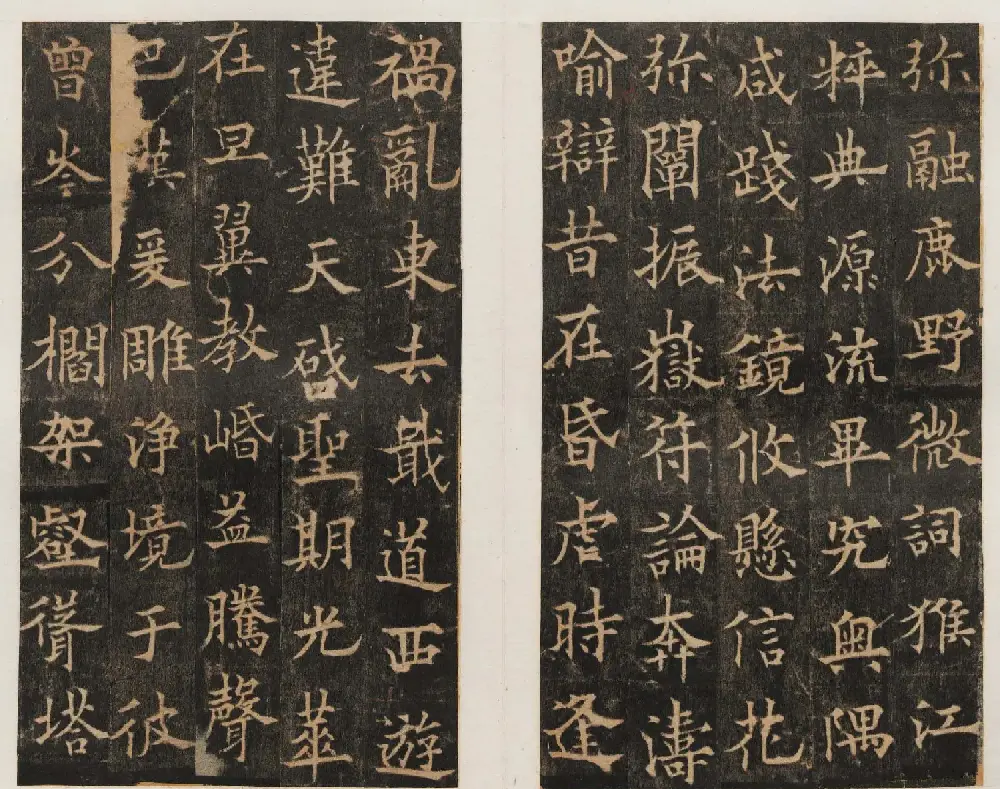 弥融鹿野微詞猴江
粹典源流畢究奧隅
咸踐法鏡攸懸信花
弥闡振嶽符論奔濤
喻辯昔在昏虐時逢
禍亂東去戢道西遊
違難天啓聖期光華
在旦翼教崏益騰聲
巴漢爰雕淨境于彼
曾岑分櫩架壑聳塔